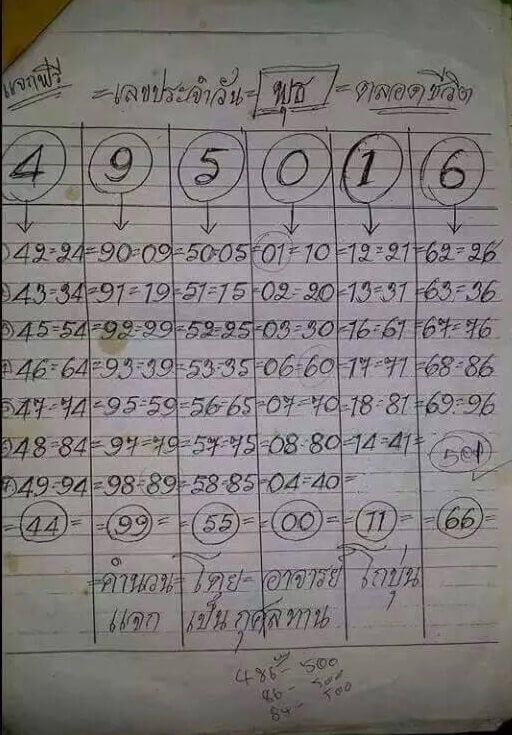 แจกฟรี
=เลขประจำวัน= พุธ =ตลอดชีวิต
4 9 5 0 1 6
42=24=90=09=50=05=01=10=12=21=62=26
43=34=91=19=51=15=02=20=13=31=63=36
45=54=92=29=52=25=03=30=16=61=67=76
46=64=93=39=53=35=06=60=17=71=68=86
47=74=95=59=56=65=07=70=18=81=69=96
48=84=97=79=57=75=08=80=14=41=
501
49=94=98=89=58=85=04=40=
=44= =99= =55= =00= =11= =66=
=คำนวน=โดย=อาจารย์ โกบุ่น
แจก เป็นกุศลทาน
486- 500
86- 500
84- 500